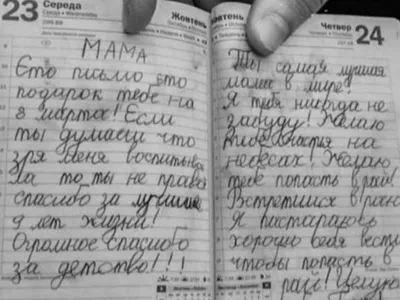 23 Середа
Жовтень
МАМА
Єто письмо єто
подарок тебе на
8 марта! Если
ты думаеш что
зря меня воспитыва
ла то ты не права
спасибо за лучшие
9 лет жизни!
Огромное спасибо
за детство!!!
Жовтень
Четвер 24
Ты самая лучшая
мама в мире!
Я тебя никогда не
забуду! Желаю
тебе счастья на
небесах! Желаю
тебе попасть в рай!
Встретимся в раю
Я постараюсь
хорошо себя вести
чтобы попасть в
рай! Целую